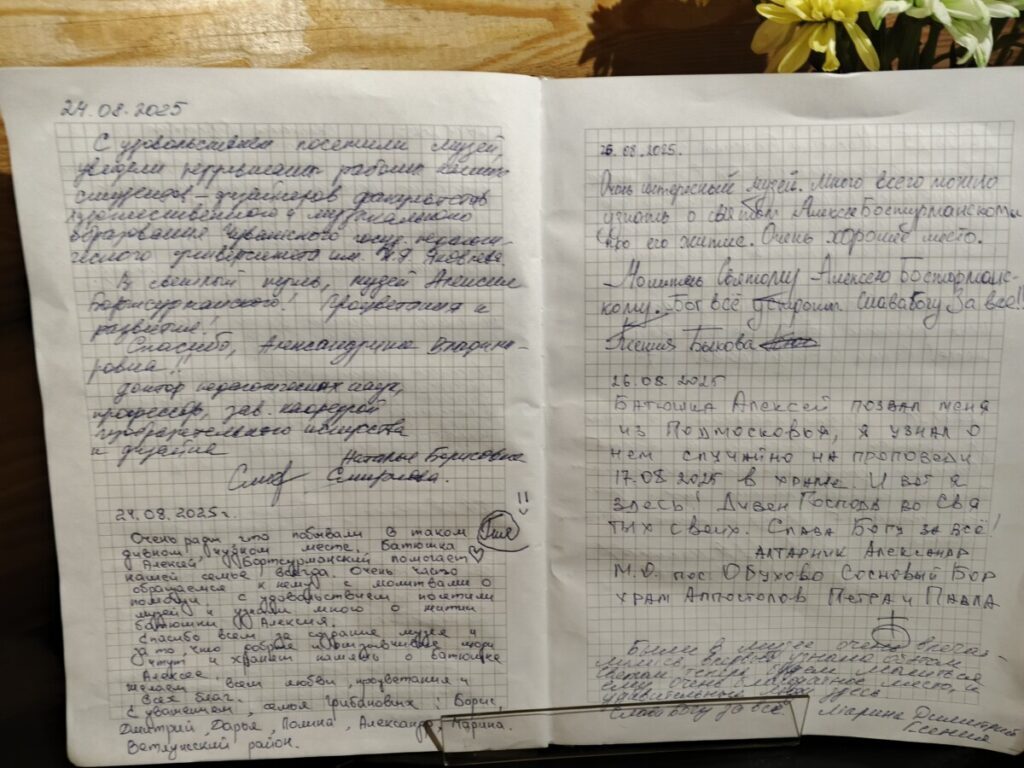 24.08.2025
С удовольствием посетили музей,
увидели
студентов - дизайнеров факультетов
художественного и музыкального
образования Чувашского госуд. педагоги-
ческого университета им. И.Я. Яковлева.
В светлый путь, музей Алексия
Бортсурманского! Процветания и
развития!
Спасибо, Александрина Владими-
ровна!!
доктор педагогических наук,
профессор, зав. кафедрой
изобразительного искусства
и дизайна
Наталья Борисовна
Смирнова.
24.08.2025г.
Очень рады что побывали в таком
дивном, чудном месте. Батюшка
Алексий Бортсурманский помогает
нашей семье всегда. Очень часто
обращаемся к нему с молитвами о
помощи. С удовольствием посетили
музей и узнали много о житии
батюшки Алексия.
Спасибо всем за создание музея и
за то, что добрые и отзывчивые люди
чтут и хранят память о батюшке
Алексее.
Желаем всем любви, процветания и
всех благ.
С уважением, семья Грибановых: Борис,
Дмитрий, Дарья, Полина, Александр, Марина.
Ветлужский район.
26.08.2025.
Очень интересный музей. Много всего можно
узнать о святом Алексе Бостурманском и
про его житие. Очень хорошее место.
Молитесь Святому Алексею Бостормас-
кому. Бог всё устроит. Слава Богу За все!!
Ксения Быкова
26.08.2025
Батюшка Алексей позвал меня
из Подмосковья, я узнал о
нем случайно на проповеди
17.08.2025 в храме. И вот я
здесь! Дивен Господь во свя
тых своих. Слава Богу за всё!
Алтарник Александр
М.О. пос. Обухово Сосновый Бор
храм Аппостолов Петра и Павла
Были в музее очень впечат-
лились, впервые узнала об этом
святом, теперь будем молиться
ему, очень благодатное место, и
удивительный музей здесь
Слава богу за всё Марина Димитрий
Ксения